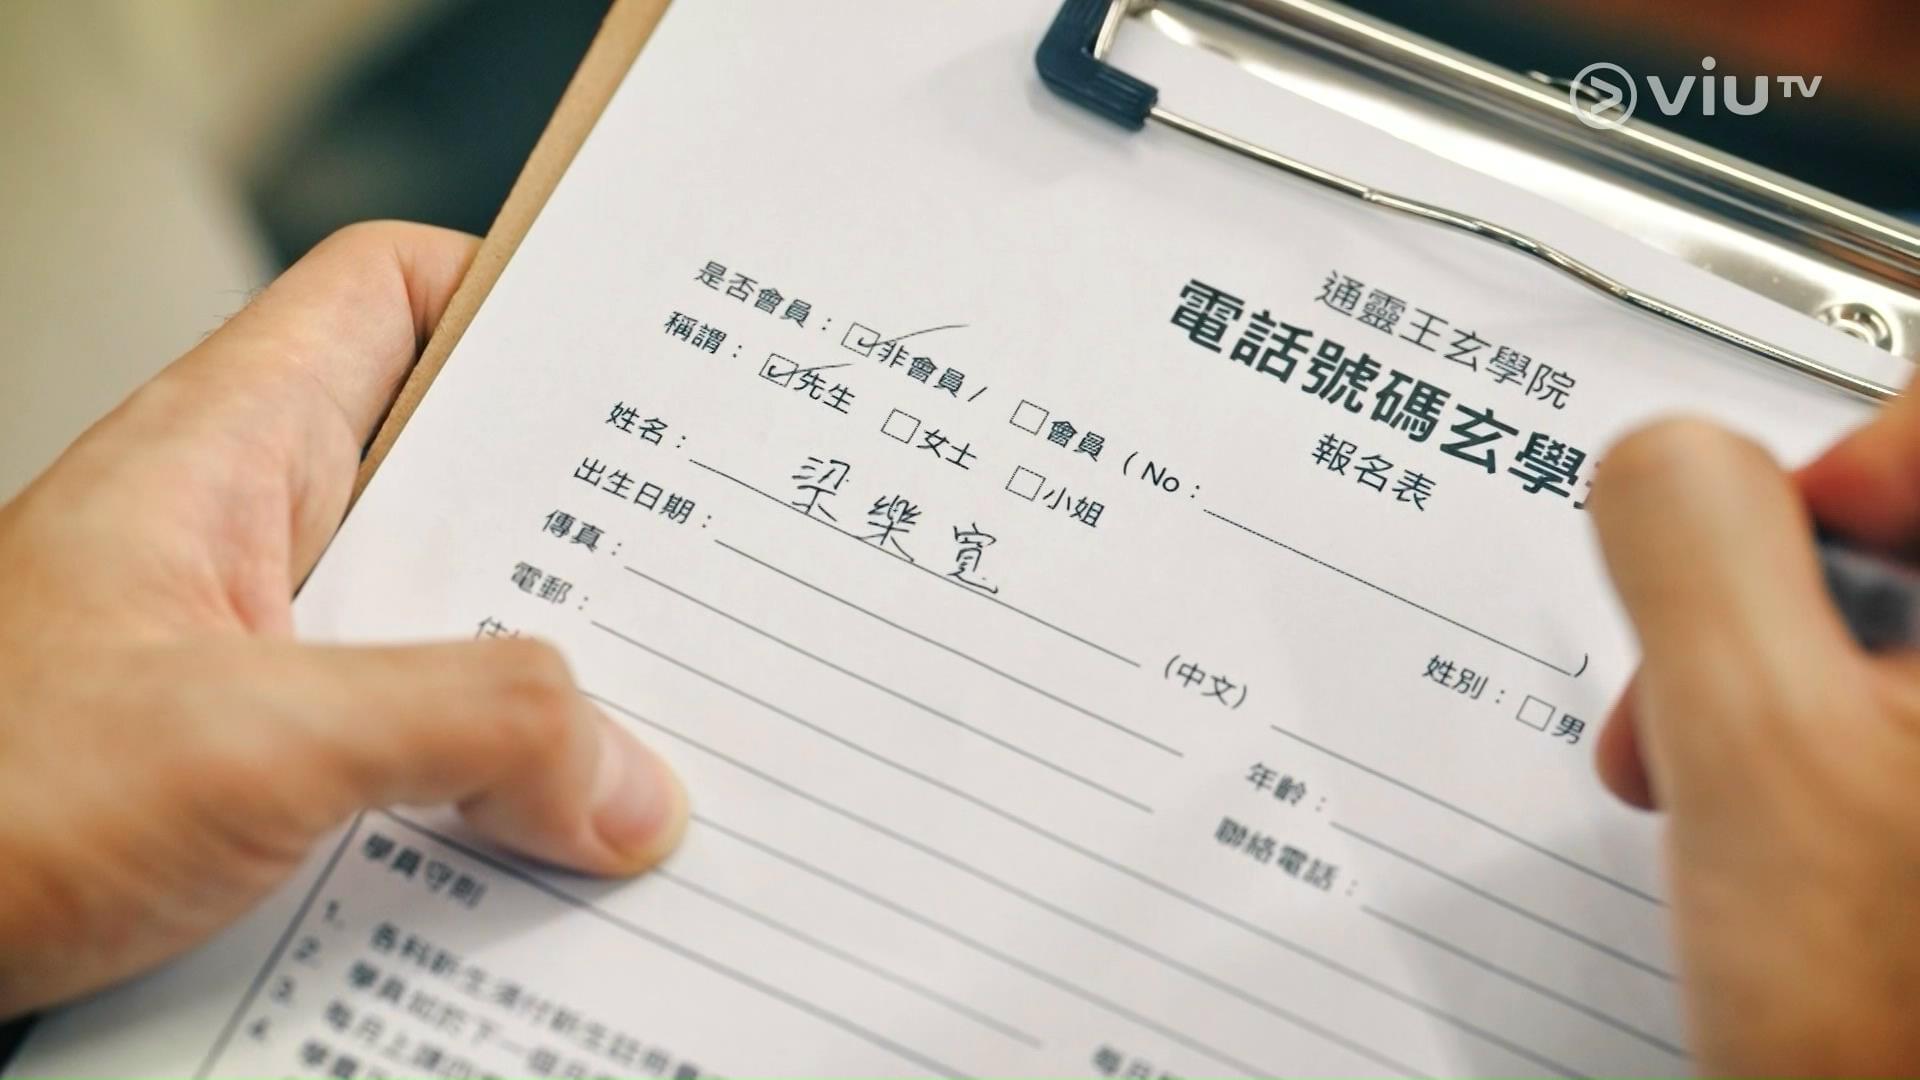 viuTV
通靈王玄學院
電話號碼玄學
報名表
是否會員：☑非會員 / ☐會員（No：）
稱謂：☑先生 ☐女士 ☐小姐
姓名：梁樂寬（中文）
姓別：☐男
出生日期：
年齡：
傳真：
聯絡電話：
電郵：
學員守則
1. 各科新生須付新生註冊費
2. 學員如於下一個月
3. 每月上課四
4. 學費
每月